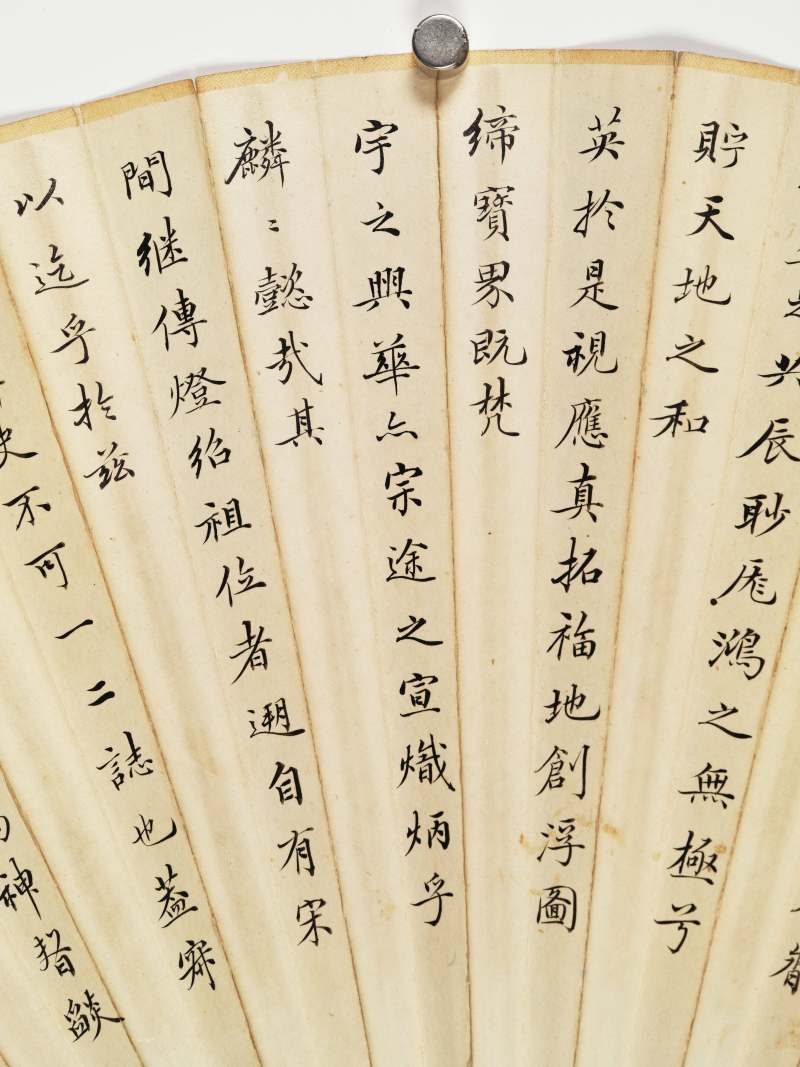 之共辰眇厖鴻之無極兮
貯天地之和
英於是視應真拓福地創浮圖
締寶界既梵
宇之興華亦宗途之宣熾炳乎
麟〻懿哉其
間継傳燈紹祖位者遡自有宋
以迄乎於兹
史不可一二誌也蓋寂
神